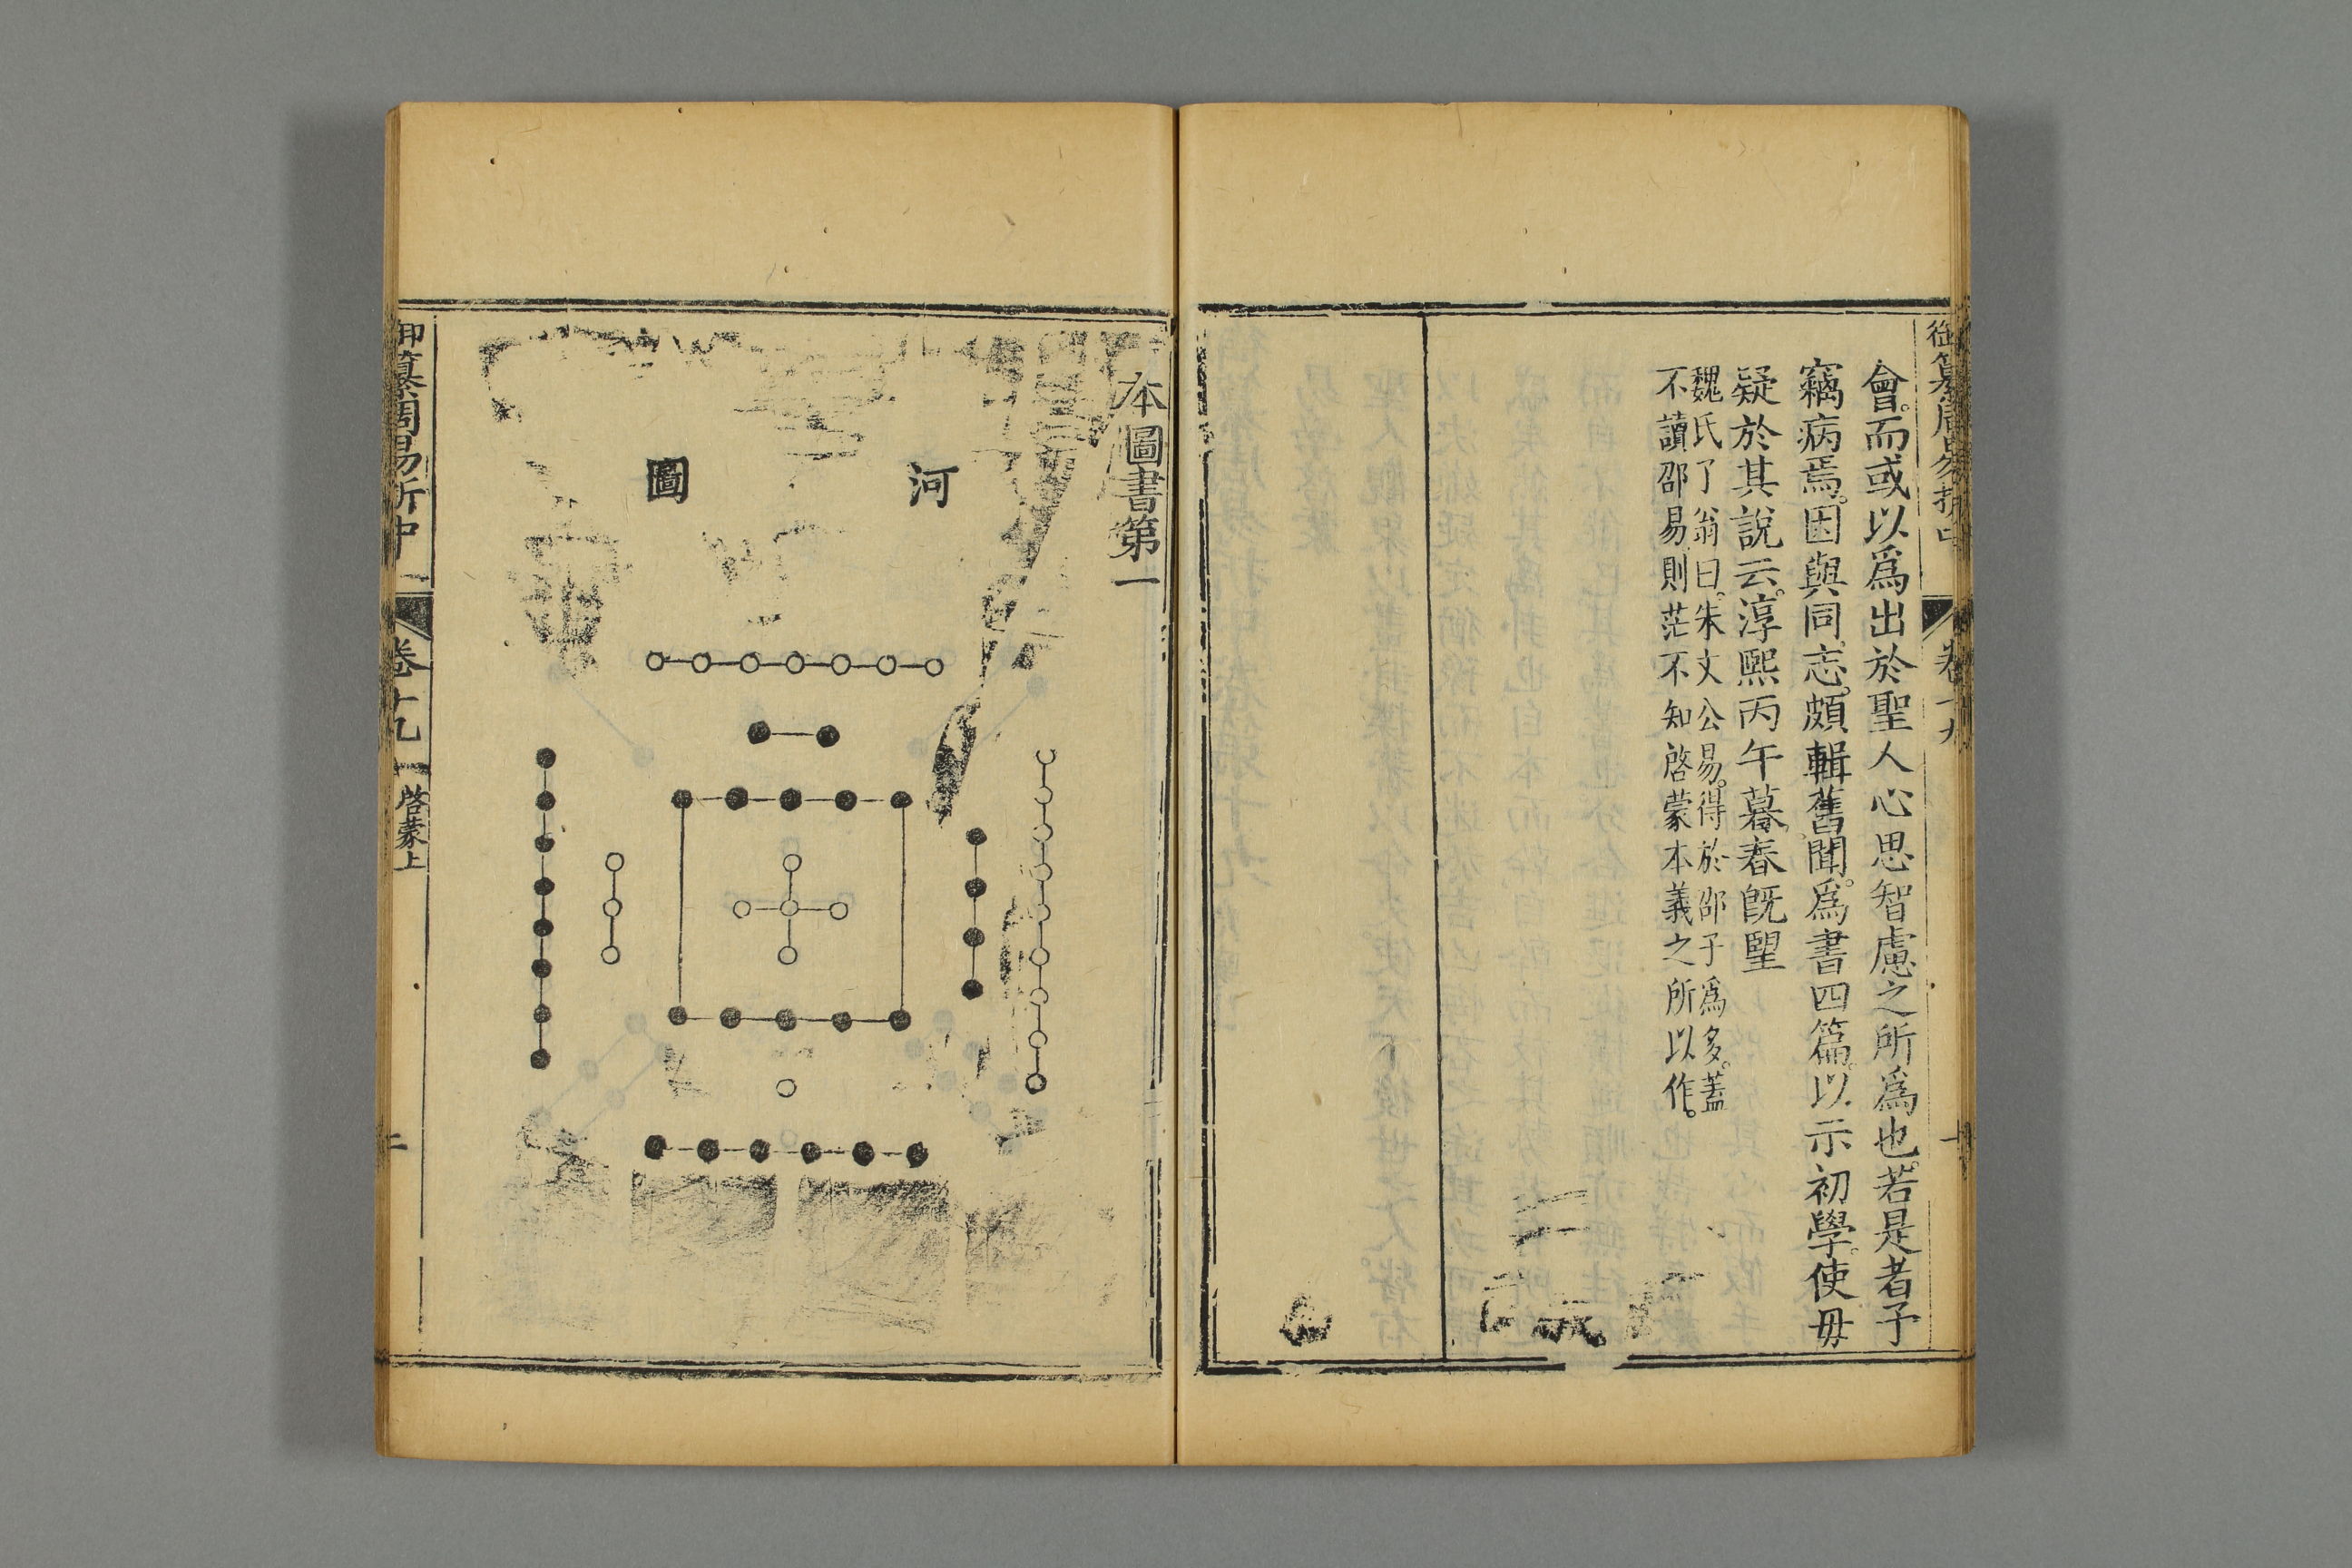 御纂周易折中
卷十九
會。而或以爲出於聖人心思智慮之所爲也。若是者予
竊病焉。因與同志。頗輯舊聞。爲書四篇。以示初學。使毋
疑於其說云。淳熙丙午暮春旣望
魏氏了翁曰。朱文公易。得於邵子爲多。蓋
不讀邵易則茫不知啓蒙本義之所以作。
本圖書第一
河
圖
御纂周易折中
卷十九
啓蒙上
二